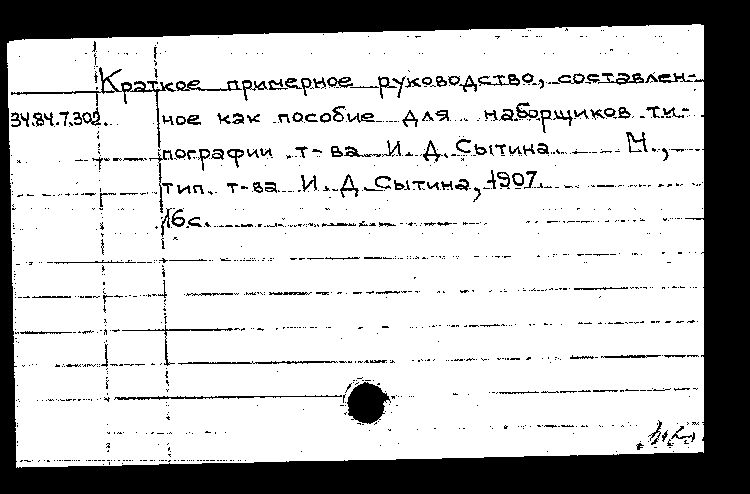 Краткое примерное руководство, составлен-
34.84.7.302. ное как пособие для наборщиков ти-
пографии т-ва И. Д. Сытина. М.,
тип. т-ва И. Д. Сытина, 1907.
16с.